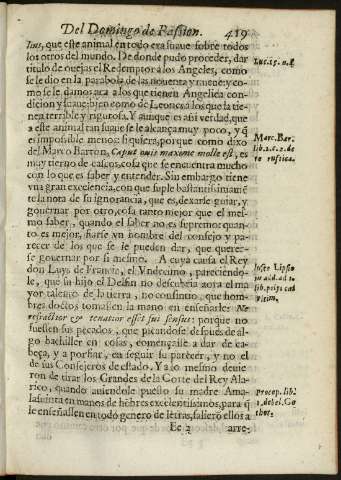 Del Domingo de Passion. 419
lius, que este animal en todo era suaue sobre todos
los otros del mundo. De donde pudo proceder, dar
titulo de ouejas el Redemptor a los Angeles, como
se le dio en la parabola de las nouenta y nueue; y co-
mo se le damos aca a los que tienen Angelica con-
dicion y suaue; bien como de Leones a los que la tie-
nen terrible y rigurosa. Y aunque es assi verdad, que
a este animal tan suaue se le alcança muy poco, y q̃
es impossible menos: siquiera, porque como dixo
del Marco Barron, Caput ouis maxime molle est, es
muy tierno de cascos, cosa que se encuentra mucho
con lo que es saber y entender. Sin embargo tiene
vna gran excelencia, con que suple
to la nota de su ignorancia, que es, dexarse guiar, y
gouernar por otro, cosa tanto mejor que el mes-
mo saber, quando el saber no es supremo: quan-
to es mejor, fiarse vn hombre del consejo y pa-
recer de los que se le pueden dar, que querer-
se gouernar por si mesmo. A cuya causa el Rey
don Luys de Francia, el Vndecimo, pareciendo-
le, que su hijo el Delfin no descubria aora el ma
yor talento de la tierra, no consintio, que hom-
bres doctos tomassen la mano en enseñarle: Ne
refractior & tenatior esset sui sensus: porque no
fuessen sus pecados, que picandose despues de al-
go bachiller en cosas, començasse a dar de ca-
beça, y a porfiar, en seguir su parecer, y no el
de sus Consejeros de estado. Y a lo mesmo deuie
ron de tirar los Grandes de la Corte del Rey Ala-
rico, quando auiendole puesto su madre Ama-
lasuinta en manos de hõbres excelentissimos, para q̃
le enseñassen en todo genero de letras, salierõ ellos a
Ee 2 arre-
Luc. 15. n.
Marc. Bar.
lib. 2. c. 2. de
re rustica.
Iuste Lipsio
lib.
Procop. lib.
1. de bel. Go
thor.